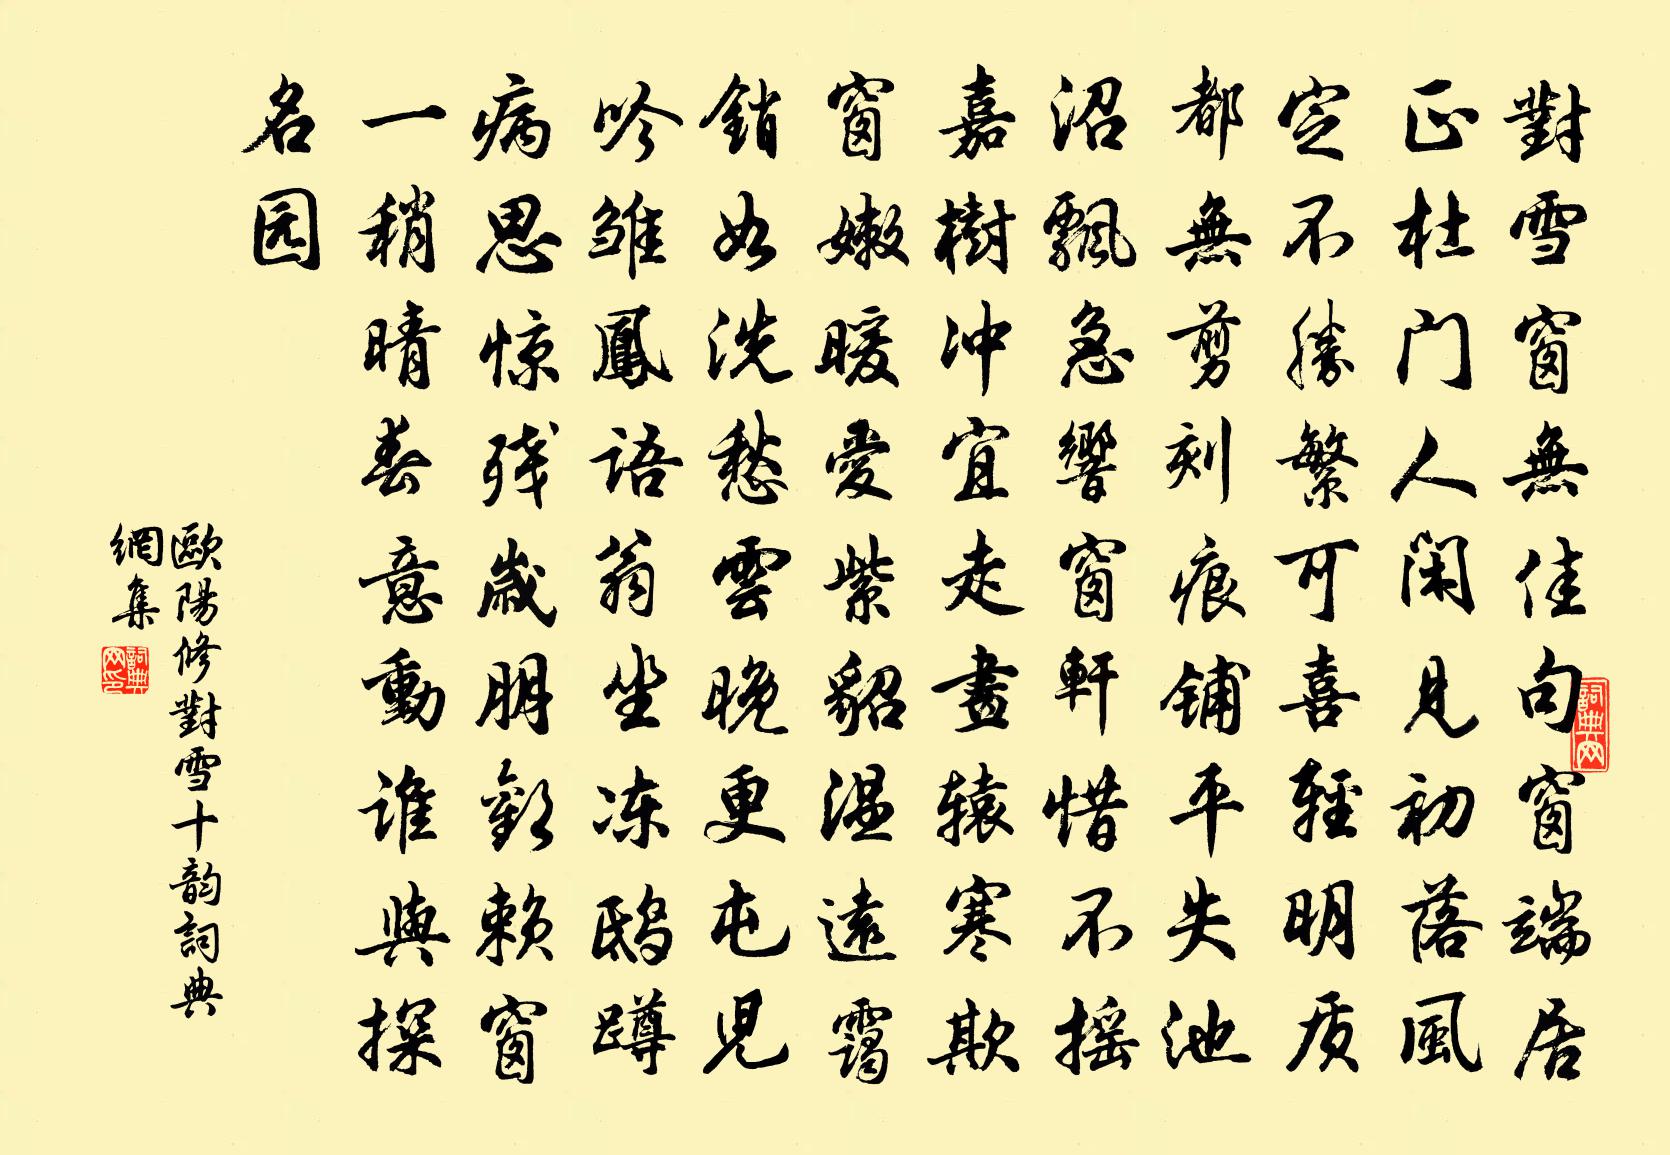 對雪窗無佳句窗端居
正杜门人闲見初落風
定不勝繁可喜輕明质
都無剪刻痕铺平失池
沼飄急響窗軒惜不摇
嘉樹冲宜走畫辕寒欺
窗嫩暖愛紫貂温遠靄
銷如洗愁雲晚更屯兒
吟雏鳳語翁坐冻鸱蹲
病思惊残歲朋歡赖窗
一稍晴春意動谁與探
名园
歐陽修對雪十韵詞典
網集
詞典网
詞典网印